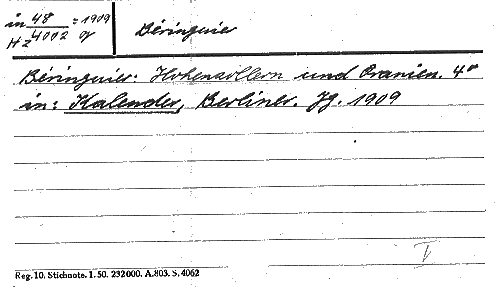 in 48 = 1909
HZ 4002 g
Béringuier
Béringuier: Hohenzollern und Oranien. 4°
in: Kalender, Berliner. Jg. 1909
V
Reg. 10. Stichnote. 1. 50. 232000. A. 803. S. 4062